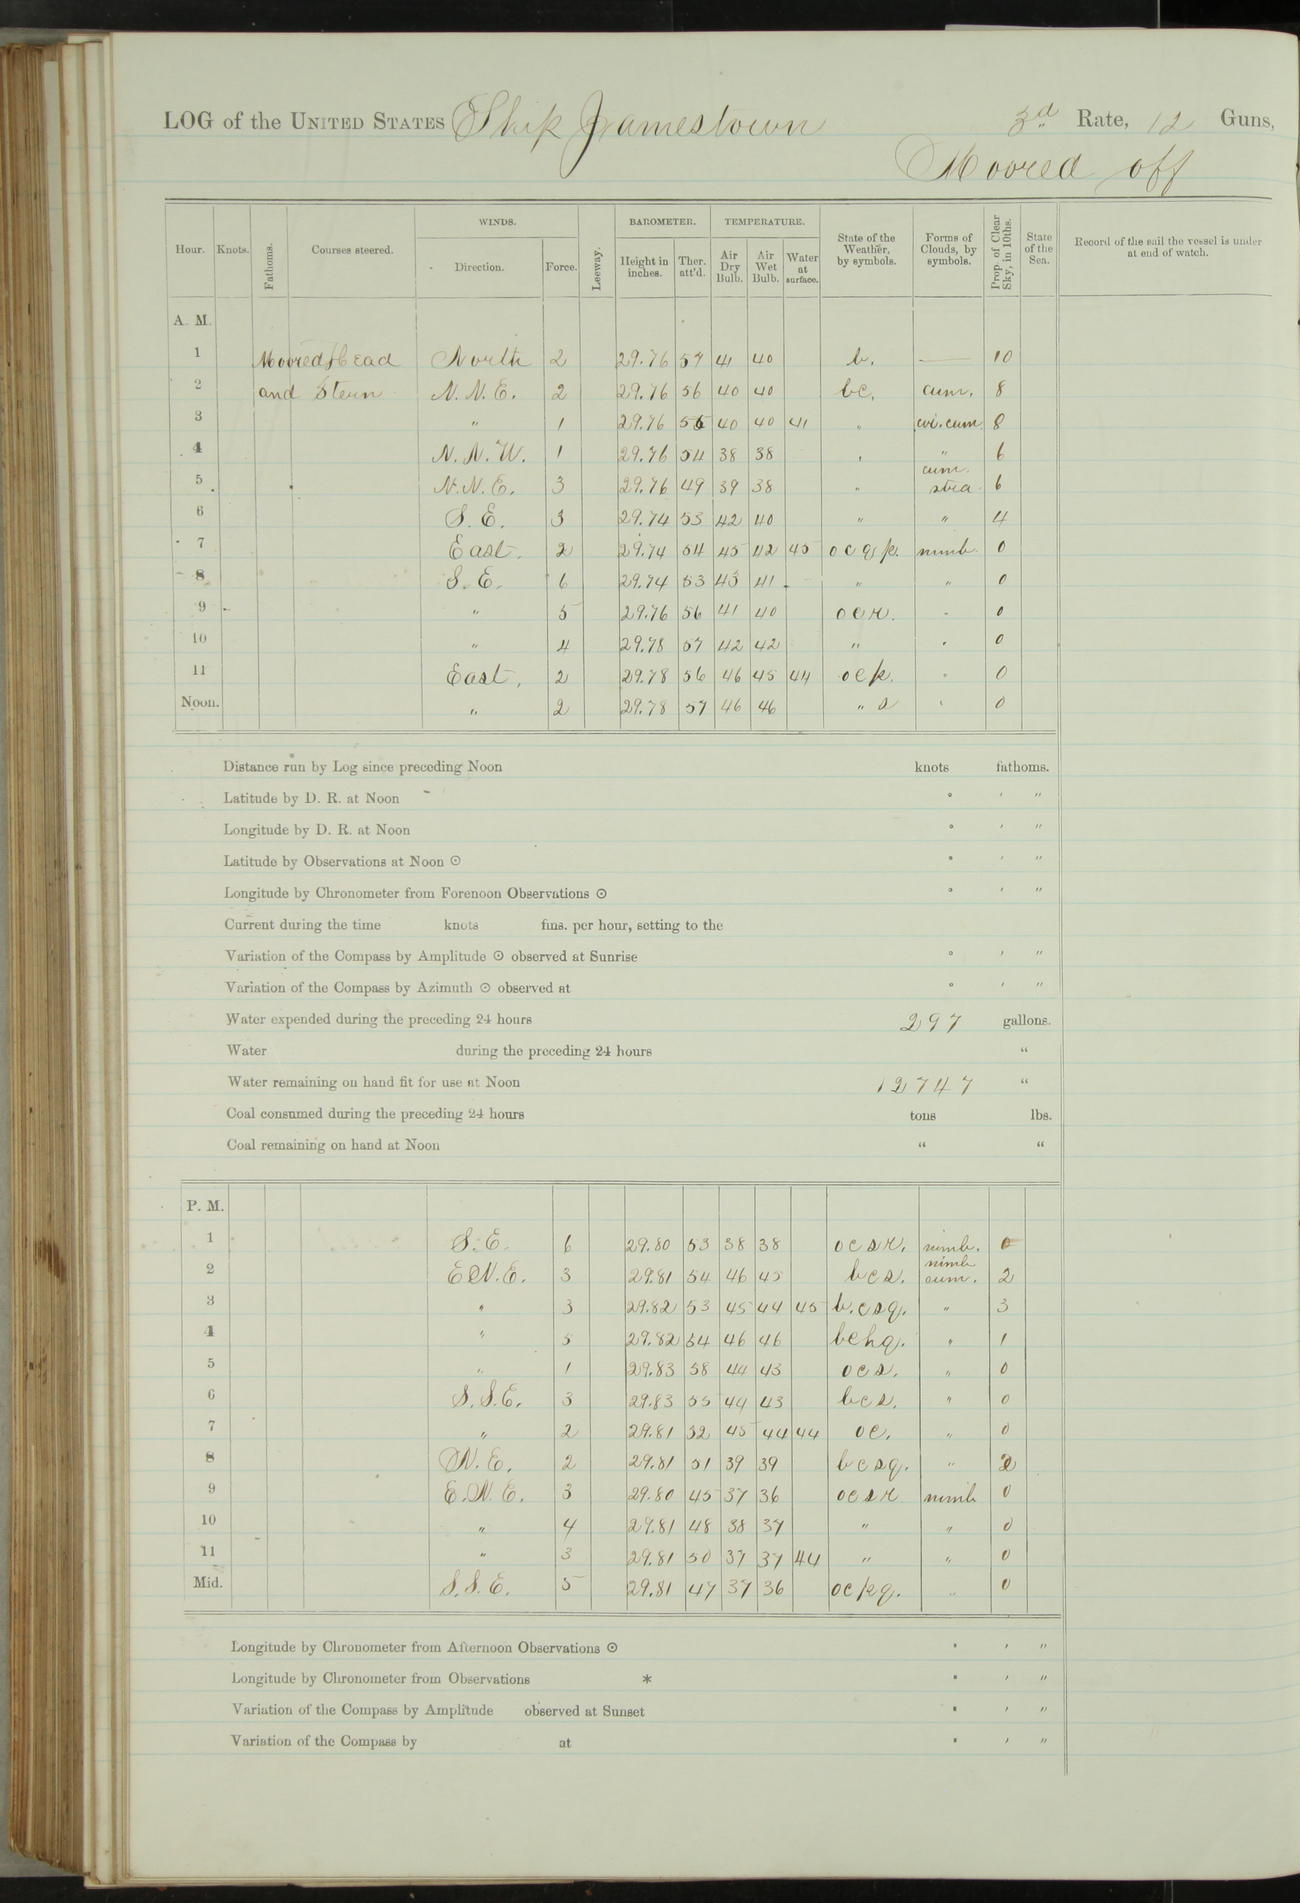 LOG of the UNITED STATES Ship Jamestown 3d Rate, 12 Guns,
Moored off
Hour. Knots. Fathoms. Courses steered. WINDS. Direction. Force. Leeway. BAROMETER. Height in inches. Ther. att'd. TEMPERATURE. Air Dry Bulb. Air Wet Bulb. Water at surface. State of the Weather, by symbols. Forms of Clouds, by symbols. Prop. of Clear Sky, in 10ths. State of the Sea. Record of the sail the vessel is under at end of watch.
A. M.
1 Moored Head North 2 29.76 57 41 40 b. — 10
2 and Stern N. N. E. 2 29.76 56 40 40 bc. cum. 8
3 " 1 29.76 56 40 40 41 " cir. cum 8
4 N. N. W. 1 29.76 54 38 38 " " 6
5 N. N. E. 3 29.76 49 39 38 " cum. stra. 6
6 S. E. 3 29.74 53 42 40 " " 4
7 East. 2 29.74 54 45 42 45 o c q p. nimb. 0
8 S. E. 6 29.74 53 43 41 " " 0
9 " 5 29.76 56 41 40 o c r. " 0
10 " 4 29.78 57 42 42 " " 0
11 East. 2 29.78 56 46 45 44 o c p. " 0
Noon. " 2 29.78 57 46 46 " s " 0
Distance run by Log since preceding Noon knots fathoms.
Latitude by D. R. at Noon ° ' "
Longitude by D. R. at Noon ° ' "
Latitude by Observations at Noon ⊙ ° ' "
Longitude by Chronometer from Forenoon Observations ⊙ ° ' "
Current during the time knots fms. per hour, setting to the
Variation of the Compass by Amplitude ⊙ observed at Sunrise ° ' "
Variation of the Compass by Azimuth ⊙ observed at ° ' "
Water expended during the preceding 24 hours 297 gallons.
Water during the preceding 24 hours "
Water remaining on hand fit for use at Noon 12747 "
Coal consumed during the preceding 24 hours tons lbs.
Coal remaining on hand at Noon " "
P. M.
1 S. E. 6 29.80 53 38 38 o c s r. nimb. 0
2 E N. E. 3 29.81 54 46 45 b c s. nimb cum. 2
3 " 3 29.82 53 45 44 45 b. c s q. " 3
4 " 5 29.82 54 46 46 b c h q. " 1
5 " 1 29.83 58 44 43 o c s. " 0
6 S. S. E. 3 29.83 55 44 43 b c s. " 0
7 " 2 29.81 52 45 44 44 o c. " 0
8 N. E. 2 29.81 51 39 39 b c s q. " 2
9 E. N. E. 3 29.80 45 37 36 o c s r nimb 0
10 " 4 29.81 48 38 37 " " 0
11 " 3 29.81 50 37 37 44 " " 0
Mid. S. S. E. 5 29.81 47 37 36 o c p q. " 0
Longitude by Chronometer from Afternoon Observations ⊙ ° ' "
Longitude by Chronometer from Observations * ° ' "
Variation of the Compass by Amplitude observed at Sunset ° ' "
Variation of the Compass by at ° ' "